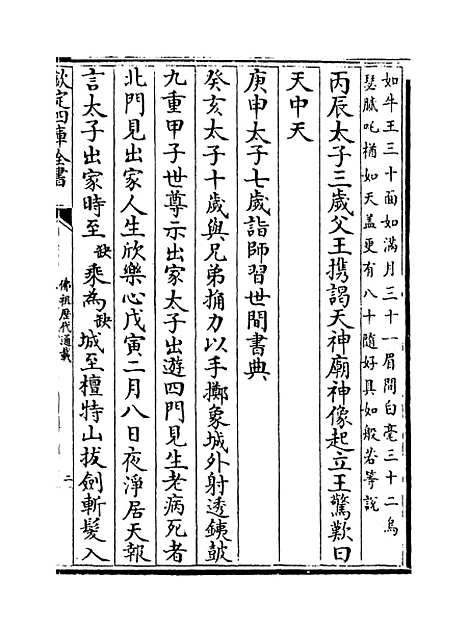 如牛王三十面如滿月三十一眉間白毫三十二烏
瑟膩吒猶如天盖更有八十隨好具如般若等說
丙辰太子三歲父王携謁天神廟神像起立王驚歎曰
天中天
庚申太子七歲詣師習世間書典
癸亥太子十歲與兄弟捔力以手擲象城外射透銕皷
九重甲子世尊示出家太子出遊四門見生老病死者
北門見出家人生欣樂心戊寅二月八日夜淨居天報
言太子出家時至缺乘為缺城至檀特山拔劍斬髮入
欽定四庫全書
佛祖歷代通載
二